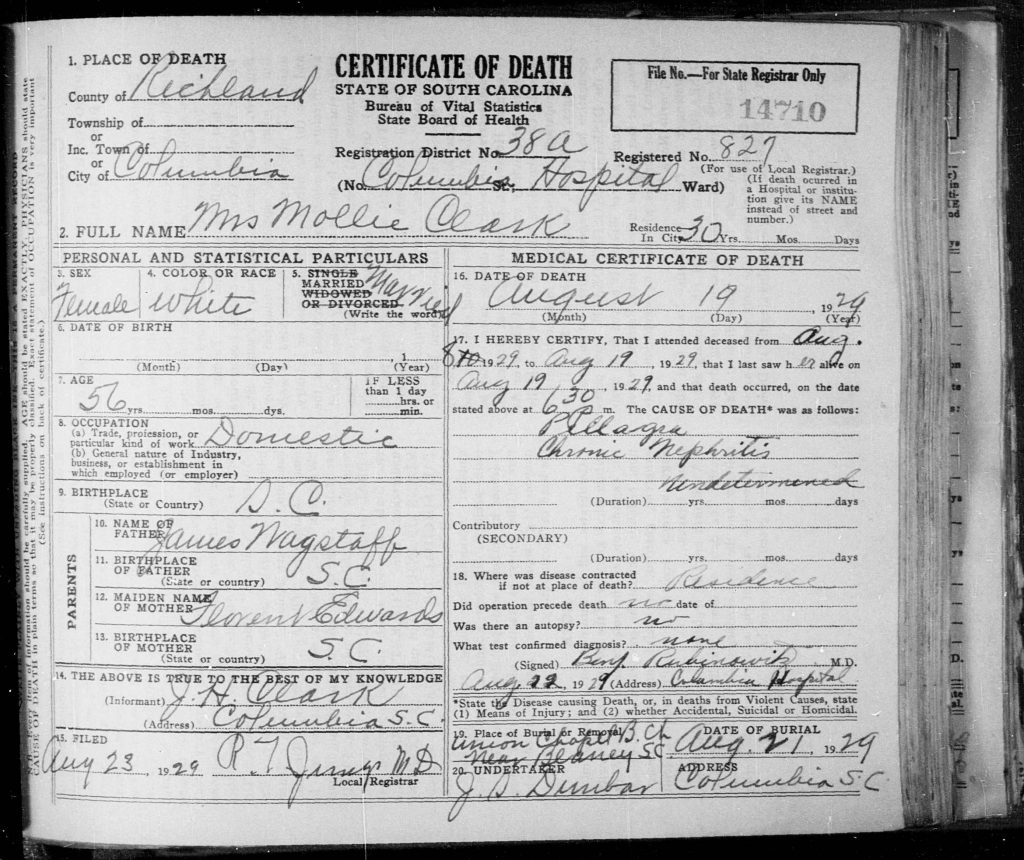 1. PLACE OF DEATH
County of Richland
Township of
or
Inc. Town of
or
City of Columbia
CERTIFICATE OF DEATH
STATE OF SOUTH CAROLINA
Bureau of Vital Statistics
State Board of Health
Registration District No. 38A
(No. Columbia St. Hospital Ward)
File No.—For State Registrar Only
14710
Registered No. 827
(For use of Local Registrar.)
(If death occurred in
a Hospital or institu-
tion give its NAME
instead of street and
number.)
2. FULL NAME Mrs Mollie Clark
Residence
In City 30 Yrs. Mos. Days
PERSONAL AND STATISTICAL PARTICULARS
3. SEX
Female
4. COLOR OR RACE
White
5. SINGLE
MARRIED
WIDOWED
OR DIVORCED
(Write the word)
Married
6. DATE OF BIRTH
, 1
(Month) (Day) (Year)
7. AGE
56 yrs. mos. dys.
IF LESS
than 1 day
hrs. or
min.
8. OCCUPATION
(a) Trade, profession, or
particular kind of work Domestic
(b) General nature of Industry,
business, or establishment in
which employed (or employer)
9. BIRTHPLACE
(State or Country) S.C.
PARENTS
10. NAME OF
FATHER James Wagstaff
11. BIRTHPLACE
OF FATHER
(State or country) S.C.
12. MAIDEN NAME
OF MOTHER Florent Edwards
13. BIRTHPLACE
OF MOTHER
(State or country) S.C.
14. THE ABOVE IS TRUE TO THE BEST OF MY KNOWLEDGE
(Informant) J. H. Clark
(Address) Columbia S.C.
15. FILED
Aug 23, 1929 R. T. M D
Local Registrar
MEDICAL CERTIFICATE OF DEATH
16. DATE OF DEATH
August 19, 1929
(Month) (Day) (Year)
17. I HEREBY CERTIFY, That I attended deceased from Aug.
1929, to Aug 19, 1929, that I last saw her alive on
Aug 19, 1929 and that death occurred, on the date
stated above at 6 30 m. The CAUSE OF DEATH* was as follows:
Pellagra
Chronic Nephritis
Undetermined
(Duration) yrs. mos. days
Contributory
(SECONDARY)
(Duration) yrs. mos. days
18. Where was disease contracted
if not at place of death? Residence
Did operation precede death no date of
Was there an autopsy? no
What test confirmed diagnosis? none
(Signed) Benj Rubinowitz M.D.
Aug 22, 1929 (Address) Columbia Hospital
*State the Disease causing Death, or, in deaths from Violent Causes, state
(1) Means of Injury; and (2) whether Accidental, Suicidal or Homicidal.
19. Place of Burial or Removal
Union Chapel B. Ch
Near Blaney SC
DATE OF BURIAL
Aug. 21, 1929
20. UNDERTAKER
J. S. Dunbar
ADDRESS
Columbia S.C.